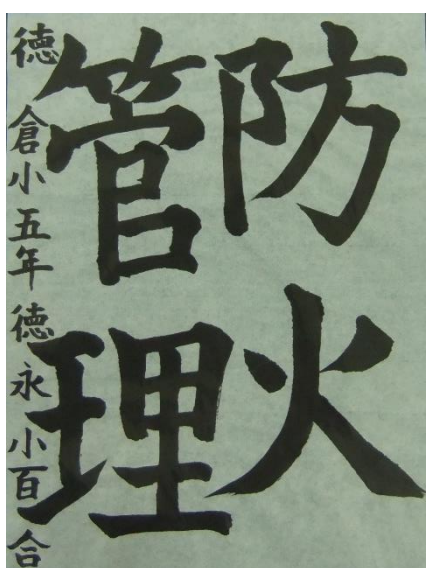 防火
管理
徳倉小五年徳永小百合